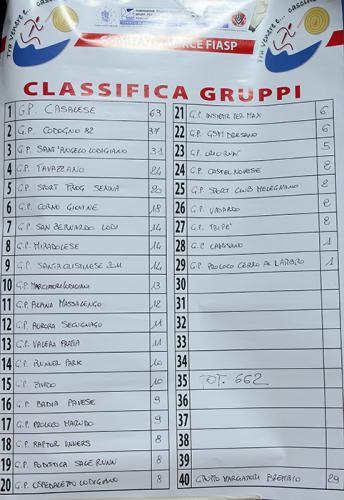 Tra Venere e...
FIASP
CLASSIFICA GRUPPI
1 G.P. CASALESE 63
2 G.P. CODOGNO 82 37
3 G.P. SANT'ANGELO LODIGIANO 31
4 G.P. TAVAZZANO 24
5 G.P. SPORT FROG SENNA 20
6 G.P. CORNO GIOVINE 18
7 G.P. SAN BERNARDO LODI 14
8 G.P. MIRADOLESE 14
9 G.P. SANTACRISTINESE 2011 14
10 G.P. MARCIATORI LODIGIANI 13
11 G.P. ALPINA MASSALENGO 12
12 G.P. AURORA SEGUGNAGO 11
13 G.P. VALERA FRATTA 11
14 G.P. RUNNER PARK 10
15 G.P. ZIVIDO 10
16 G.P. BADIA PAVESE 9
17 G.P. PROLOCO MARUDO 9
18 G.P. RAPTOR 8
19 G.P. PODISTICA SALERUNN 8
20 G.P. OSPEDALETTO LODIGIANO 8
21 G.P. INSIEME PER MAX 6
22 G.P. GSM DRESANO 6
23 G.P. 5
24 G.P. CASTELNOVESE
25 G.P. SPORT CLUB MELEGNANO 2
26 G.P. 2
27 G.P. 2
28 G.P. 1
29 G.P. PROLOCO CERRO AL LAMBRO 1
30
31
32
33
34
35 TOT. 662
36
37
38
39
40 GRUPPO MARCIATORI BREMBIO 29